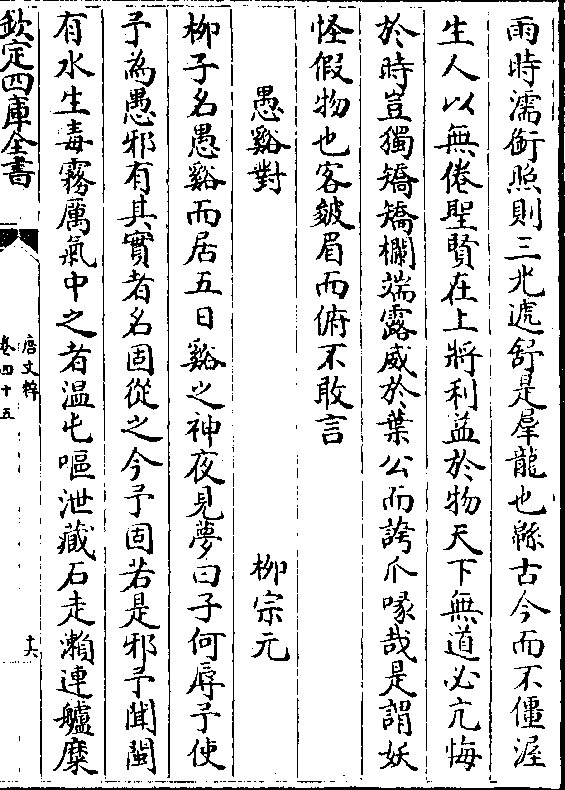 雨時濡銜照則三光遞舒是犀龍也緜古今而不僵渥
生人以無倦聖賢在上將利益於物天下無道必亢悔
於時豈獨矯矯欄端露威於葉公而誇爪喙哉是謂妖
怪假物也客皺眉而俯不敢言
愚谿對 柳宗元
柳子名愚谿而居五日谿之神夜見夢曰子何辱予使
予為愚邪有其實者名固從之今予固若是邪予聞閩
有水生毒霧厲氣中之者温屯嘔泄藏石走瀨連艫糜
欽定四庫全書
唐文粹
卷四十五
十六